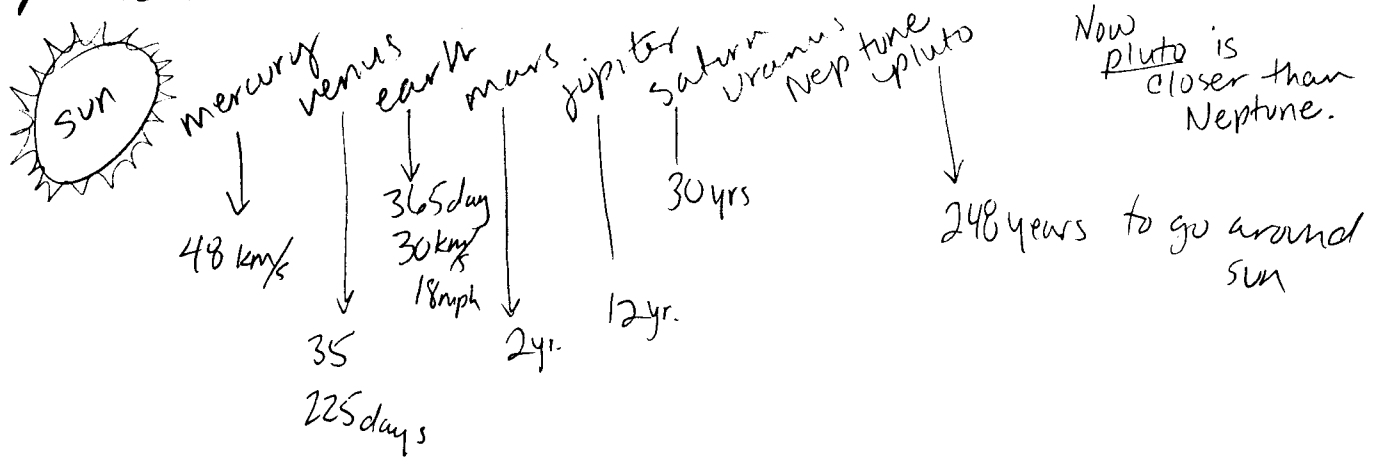 sun
mercury
venus
earth
mars
jupiter
saturn
uranus
Neptune
pluto
Now
pluto is
closer than
Neptune.
48 km/s
35
225 days
365 day
30 km/s
18 mph
2 yr.
12 yr.
30 yrs
248 years to go around
sun